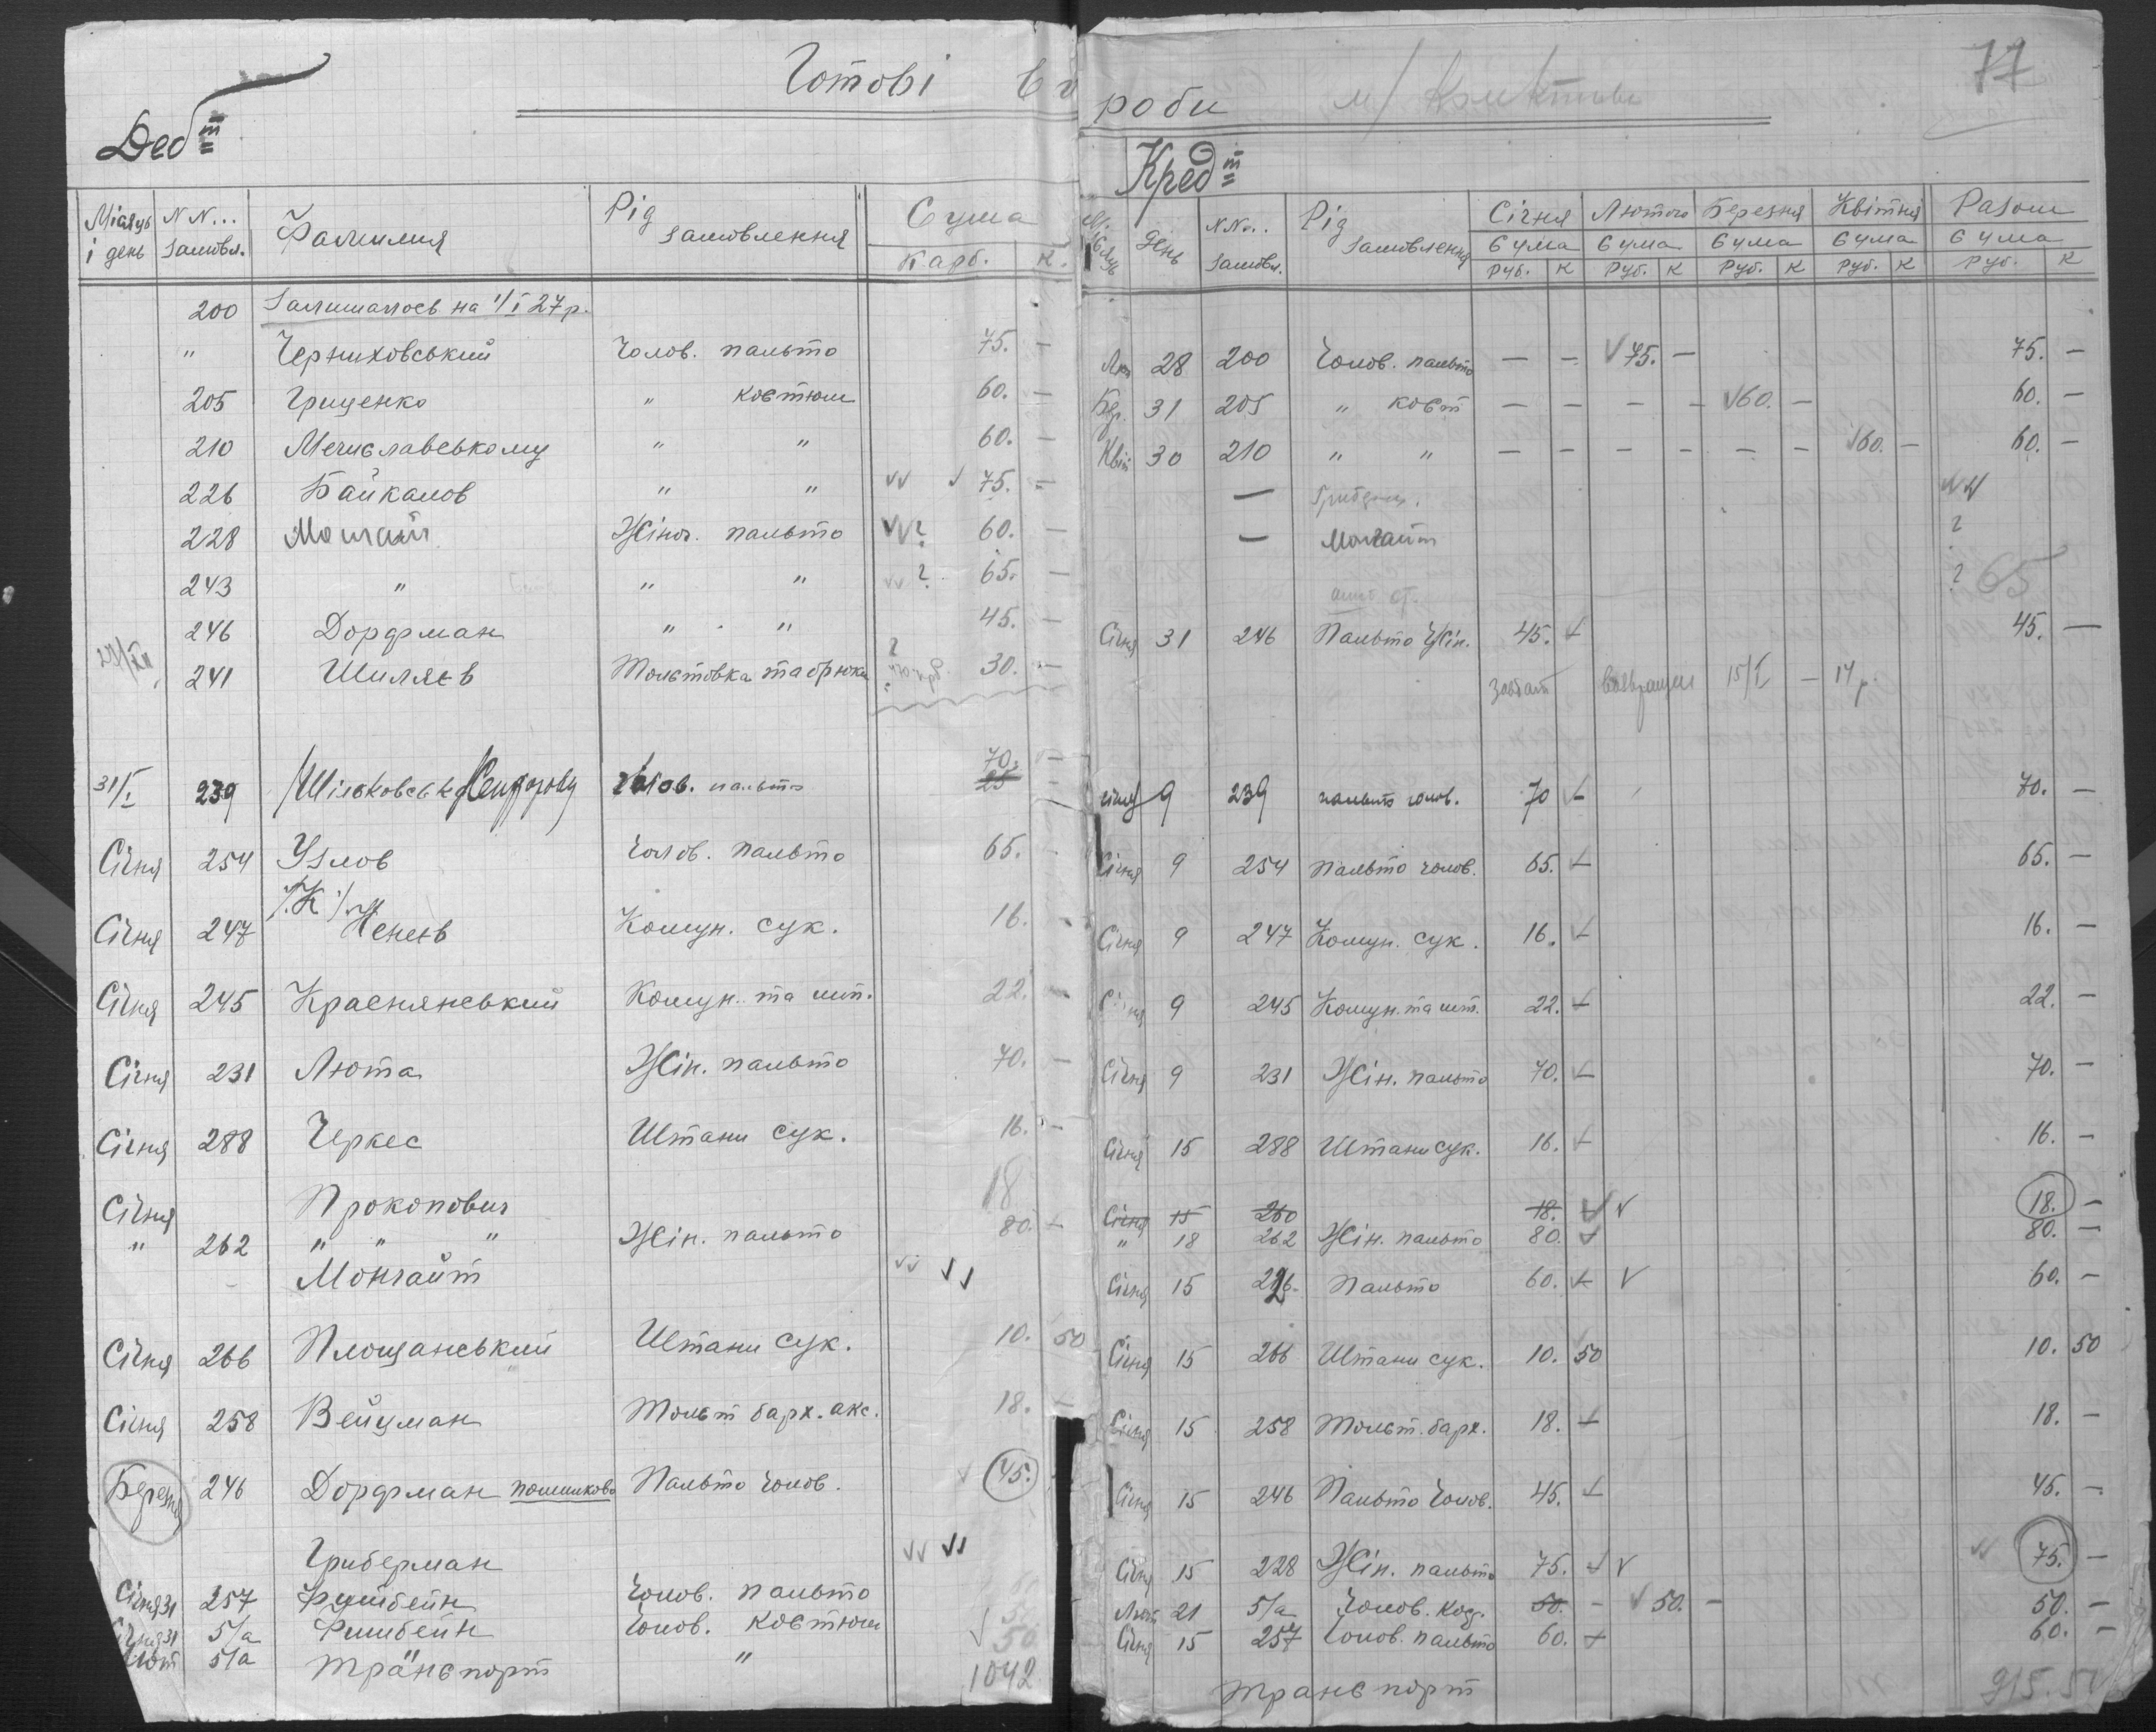 77
Готові Ви роби
Дебт
Місяць і день | NN... замовл. | Фамилия | Рід замовлення | Сума
Карб. | К.
200 Залишалось на 1/I 27 р.
" Черниховський Чолов. пальто 75. —
205 Гриценко " костюм 60. —
210 Мечиславському " " 60. —
226 Байкалов " " 75. —
228 Жіноч. пальто ? 60. —
243 " " " ? 65. —
246 Дорфман " " 45. —
241 Шиляєв Толстовка та брюки 30. —
31/I 239 Чолов. пальто 70. —
25
Січня 254 Узлов Чолов. пальто 65.
Січня 247 Комун. сук. 16.
Січня 245 Краснянський Комун. та шт. 22. —
Січня 231 Люта Жін. пальто 70. —
Січня 288 Черкес Штани сук. 16. —
Січня Прокопович 18
" 262 " " " Жін. пальто 80. —
Монгайт
Січня 266 Площанський Штани сук. 10. 50
Січня 258 Вейцман Толст барх. акс. 18. —
Березня 246 Дорфман помилково Пальто Чолов. 45.
Гриберман
Січня 31 257 Фишбейн Чолов. пальто
Січня 31 5/а Фишбейн Чолов. костюм 50
Лют 5/а " " 50
Транспорт 1042
Кредт
Місяць | День | NN.. замовл. | Рід замовлення | Січня | Лютого | Березня | Квітня | Разом
Сума | Сума | Сума | Сума | Сума
Руб. К | Руб. К | Руб. К | Руб. К | Руб. К
Лют 28 200 Чолов. пальто — — 75. — 75. —
Бер. 31 205 " кост — — — — 60. — 60. —
Квіт 30 210 " " — — — — — — 60. — 60. —
—
— Монгайт ?
? 65
Січня 31 246 Пальто Жін. 45. — 45. —
15/I — 14 р.
січня 9 239 пальто чолов. 70 — 70. —
Січня 9 254 Пальто чолов. 65. — 65. —
Січня 9 247 Комун. сук. 16. — 16. —
Січня 9 245 Комун. та шт. 22. — 22. —
Січня 9 231 Жін. пальто 70. — 70. —
Січня 15 288 Штани сук. 16. — 16. —
Січня 15 260 18. — 18. —
" 18 262 Жін. пальто 80. — 80. —
Січня 15 Пальто 60. — 60. —
Січня 15 266 Штани сук. 10. 50 10. 50
Січня 15 258 Толст. барх. 18. — 18. —
Січня 15 246 Пальто Чолов. 45. — 45. —
Січня 15 228 Жін. пальто 75. — 75. —
Лют 21 5/а Чолов. 50. — 50. — 50. —
Січня 15 257 Чолов. пальто 60. — 60. —
Транспорт